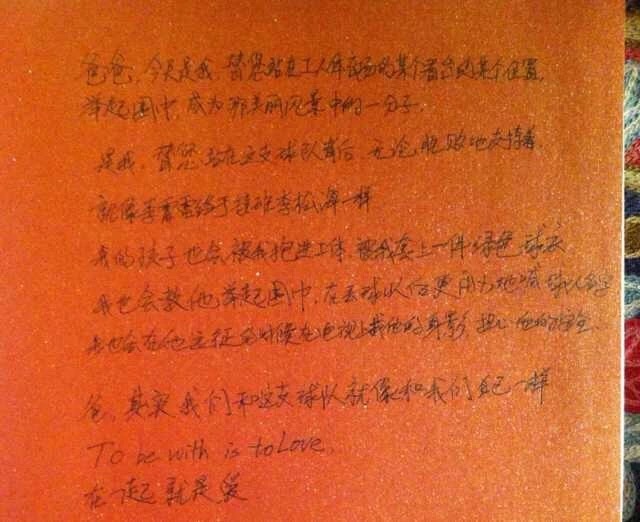 爸爸，今天是我，替您站在工人体育场的某个看台的某个位置，
举起围巾，成为那美丽风景中的一分子。
是我，替您站在这支球队背后，无论胜败地支持着，
就像李
我的孩子也会被我抱进工体，被我套上一件绿色球衣
我也会教他举起围巾，在丢球以后更用力地喊球队名字
我也会在他远征的时候在电视上找他的身影，担心他的安全。
爸，其实我们和这支球队就像和我们自己一样
To be with is to Love.
在一起就是爱